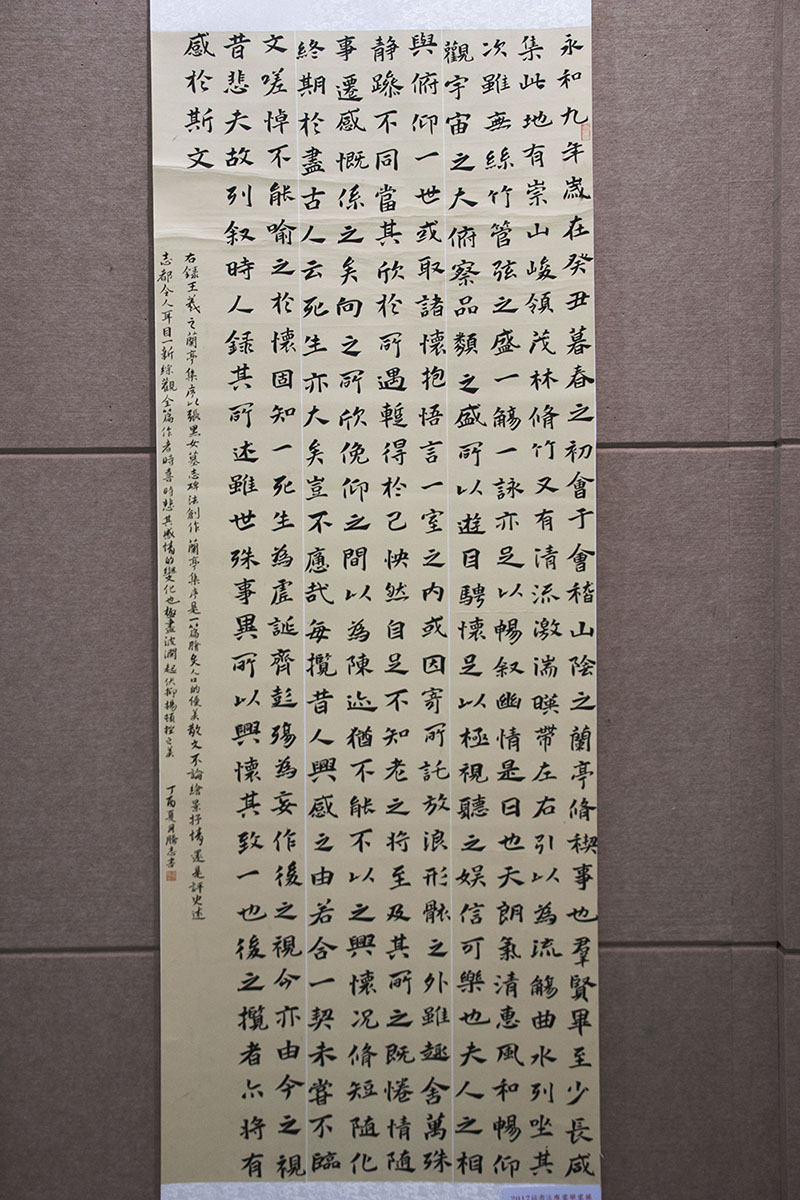 永和九年歲在癸丑暮春之初會于會稽山陰之蘭亭脩稧事也羣賢畢至少長咸
集此地有崇山峻領茂林脩竹又有清流激湍暎帶左右引以為流觴曲水列坐其
次雖無絲竹管弦之盛一觴一詠亦足以暢叙幽情是日也天朗氣清惠風和暢仰
觀宇宙之大俯察品類之盛所以遊目騁懷足以極視聽之娱信可樂也夫人之相
與俯仰一世或取諸懷抱悟言一室之内或因寄所託放浪形骸之外雖趣舍萬殊
静躁不同當其欣於所遇蹔得於己怏然自足不知老之将至及其所之既惓情随
事遷感慨係之矣向之所欣俛仰之間以為陳迹猶不能不以之興懷况脩短随化
終期於盡古人云死生亦大矣豈不應哉每攬昔人興感之由若合一契未甞不臨
文嗟悼不能喻之於懷固知一死生為虛誕齊彭殤為妄作後之視今亦由今之視
昔悲夫故列叙時人録其所述雖世殊事異所以興懷其致一也後之攬者亦将有
感於斯文
右録王羲之蘭亭集序以張黑女墓志碑法創作蘭亭集序是一篇膾炙人口的優美散文不論繪景抒情還是評史述
志都令人耳目一新綜觀全篇作者時喜時悲其感情的變化也極盡波瀾起伏抑揚頓挫之美 丁酉夏月勝志書
2017